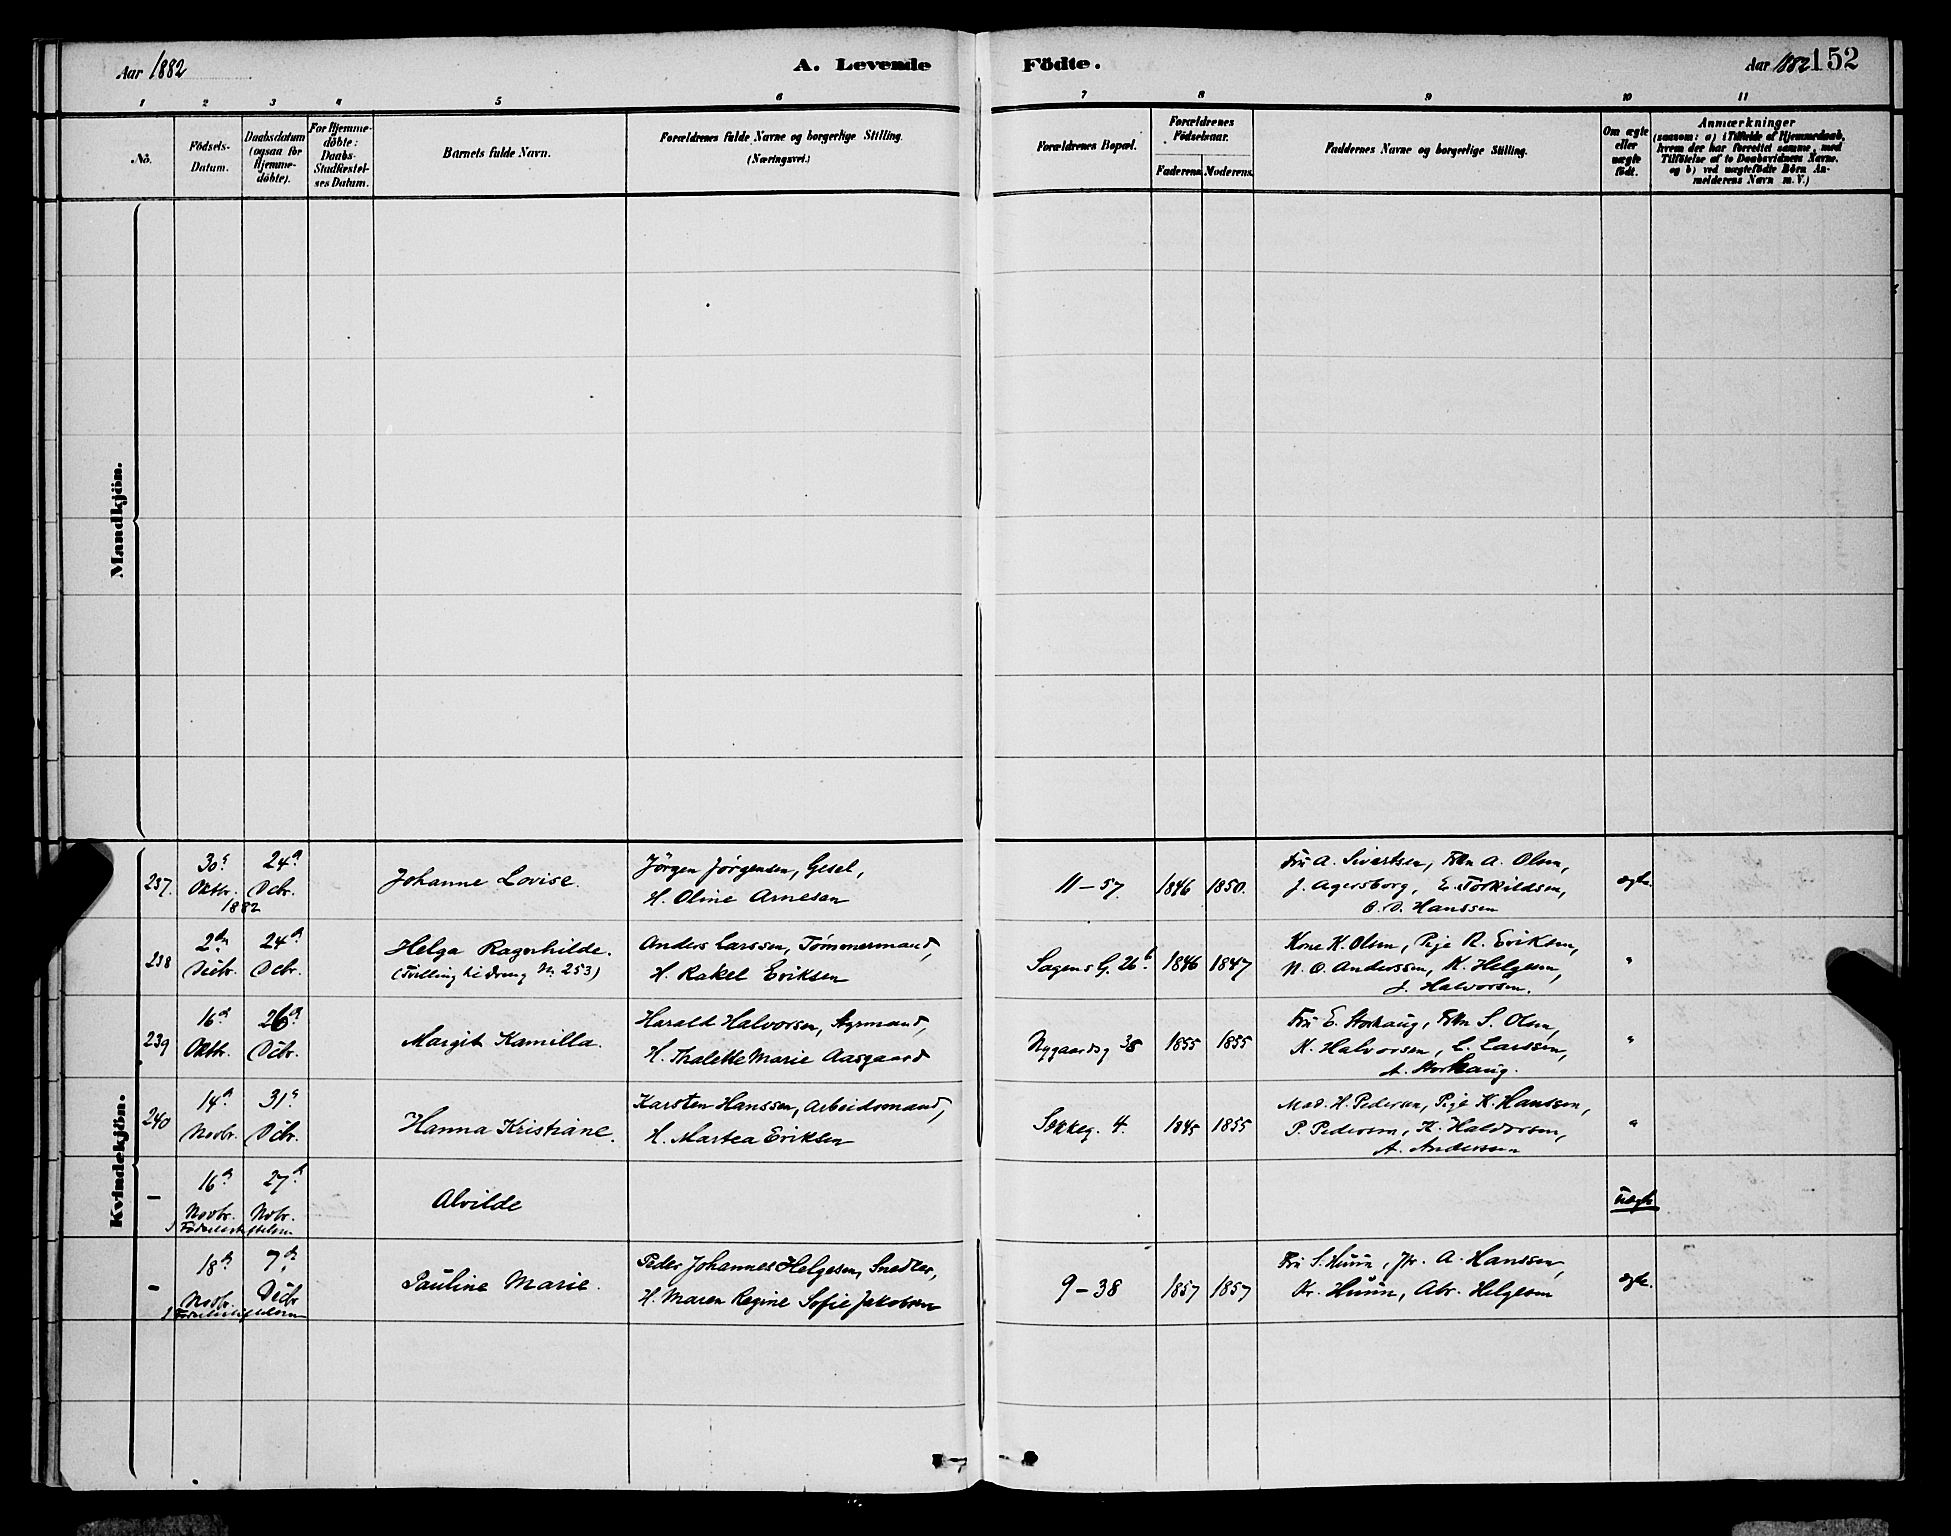 Aar 1882
A. Levende
Födte.
Aar 1882
152
1 2 3 4 5 6 7 8 9 10 11
No.
Födsels-
Datum.
Daabsdatum
(ogsaa for
Hjemme-
döbte).
For Hjemme-
döbte:
Daabs-
Stadfæstel-
ses Datum.
Barnets fulde Navn.
Forældrenes fulde Navne og borgerlige Stilling.
(Næringsvei.)
Forældrenes Bopæl.
Forældrenes
Födselsaar.
Faderens Moderens.
Faddernes Navne og borgerlige Stilling.
Om ægte
eller
uægte
födt.
Anmærkninger
(saasom: a) i Tilfælde af Hjemmedaab,
hvem der har forrettet samme, med
Tilföielse af to Daabsvidners Navne.
og b) ved uægtefödte Börn An-
melderens Navn m. V.)
Mandkjön.
Kvindekjön.
237.
30
Oktbr.
1882
24
Dcbr.
Johanne Lovise.
Jörgen Jörgensen, Gesel,
H. Oline Arnesen
11-57.
1846
1850.
Fru A. Sivertsen, Frkn A. Olsen,
J. Agersborg, E. Torkildsen,
O. D. Hanssen
ægte.
238
2den
Dcbr.
24
Dcbr.
Helga Ragnhilde.
(Tvilling til Dreng No 253)
Anders Larssen, Tömmermand,
H. Rakel Eriksen
Sagens G. 26b.
1846
1847
Kone K. Olsen, Pige R. Eriksen,
N. O. Anderssen, K. Helgesen,
J. Halvorsen.
"
239
16
Oktbr.
26
Dcbr.
Margit Kamilla.
Harald Halvorsen, Styrmand,
H. Thalette Marie Aasgaard
Nygaardsg 38
1855
1855
Fru E. Storhaug, Frkn S. Olsen,
K. Halvorsen, L. Larssen,
A. Storhaug.
"
240
14
Novbr.
31
Dcbr.
Hanna Kristiane.
Karsten Hanssen, Arbeidsmand,
H. Martea Eriksen
Sekkeg. 4.
1845
1855
Mad. H. Pedersen, Pige K. Hanssen,
P. Pedersen, K. Haldorsen,
A. Anderssen
"
-
16
Novbr.
27
Nvbr.
Alvilde
uægte
-
18
Novbr.
7
Dcbr
Pauline Marie.
Peder Johannes Helgesen, Snedker,
H. Maren Regine Sofie Jakobsen
9-38
1857
1857
Fru S. Huun, Jfr. A. Hanssen,
Kr. Huun, Abr. Helgesen
ægte.